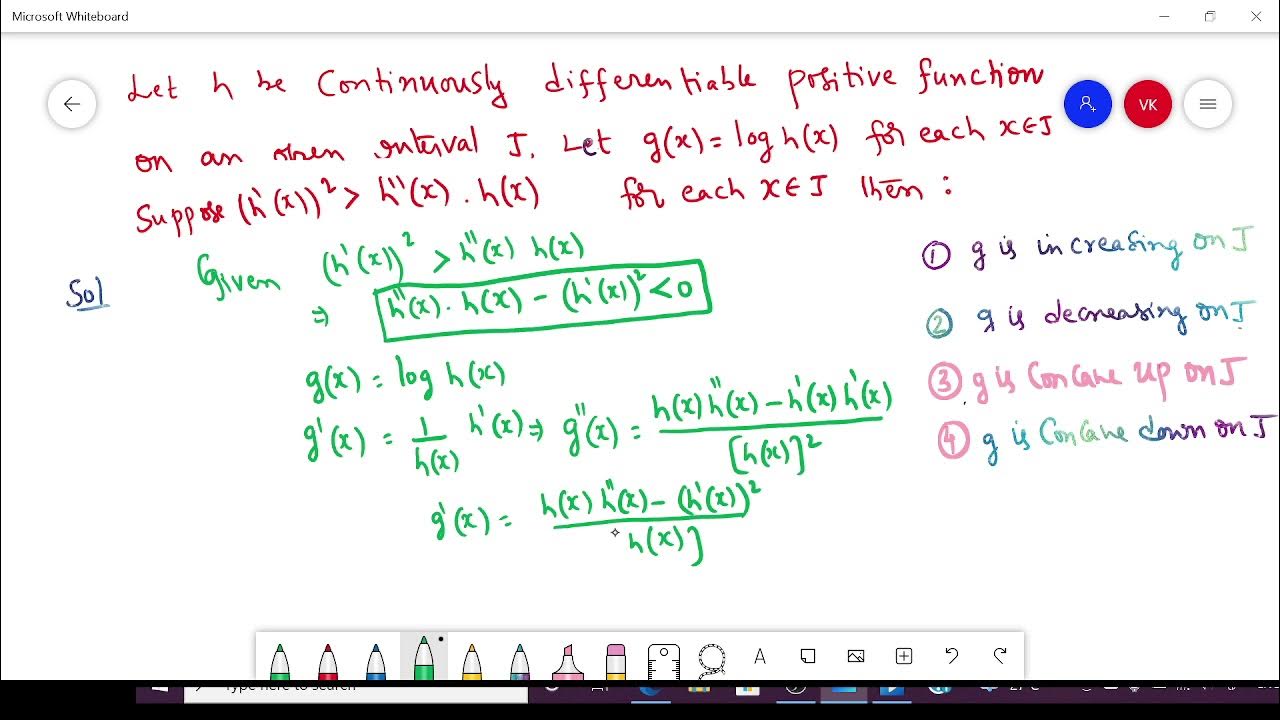 Microsoft Whiteboard
Let h be Continuously differentiable positive function
on an open interval J. Let g(x) = log h(x) for each x∈J
Suppose (h'(x))² > h''(x) . h(x) for each x∈J then :
VK
Sol
Given (h'(x))² > h''(x) h(x)
⇒ h''(x) . h(x) - (h'(x))² < 0
g(x) = log h(x)
g'(x) = 1/h(x) h'(x) ⇒ g''(x) = h(x) h''(x) - h'(x) h'(x) / [h(x)]²
g'(x) = h(x) h''(x) - (h'(x))² / h(x)]
① g is increasing on J
② g is decreasing on J
③ g is Concave up on J
④ g is Concave down on J
A
Type here to search